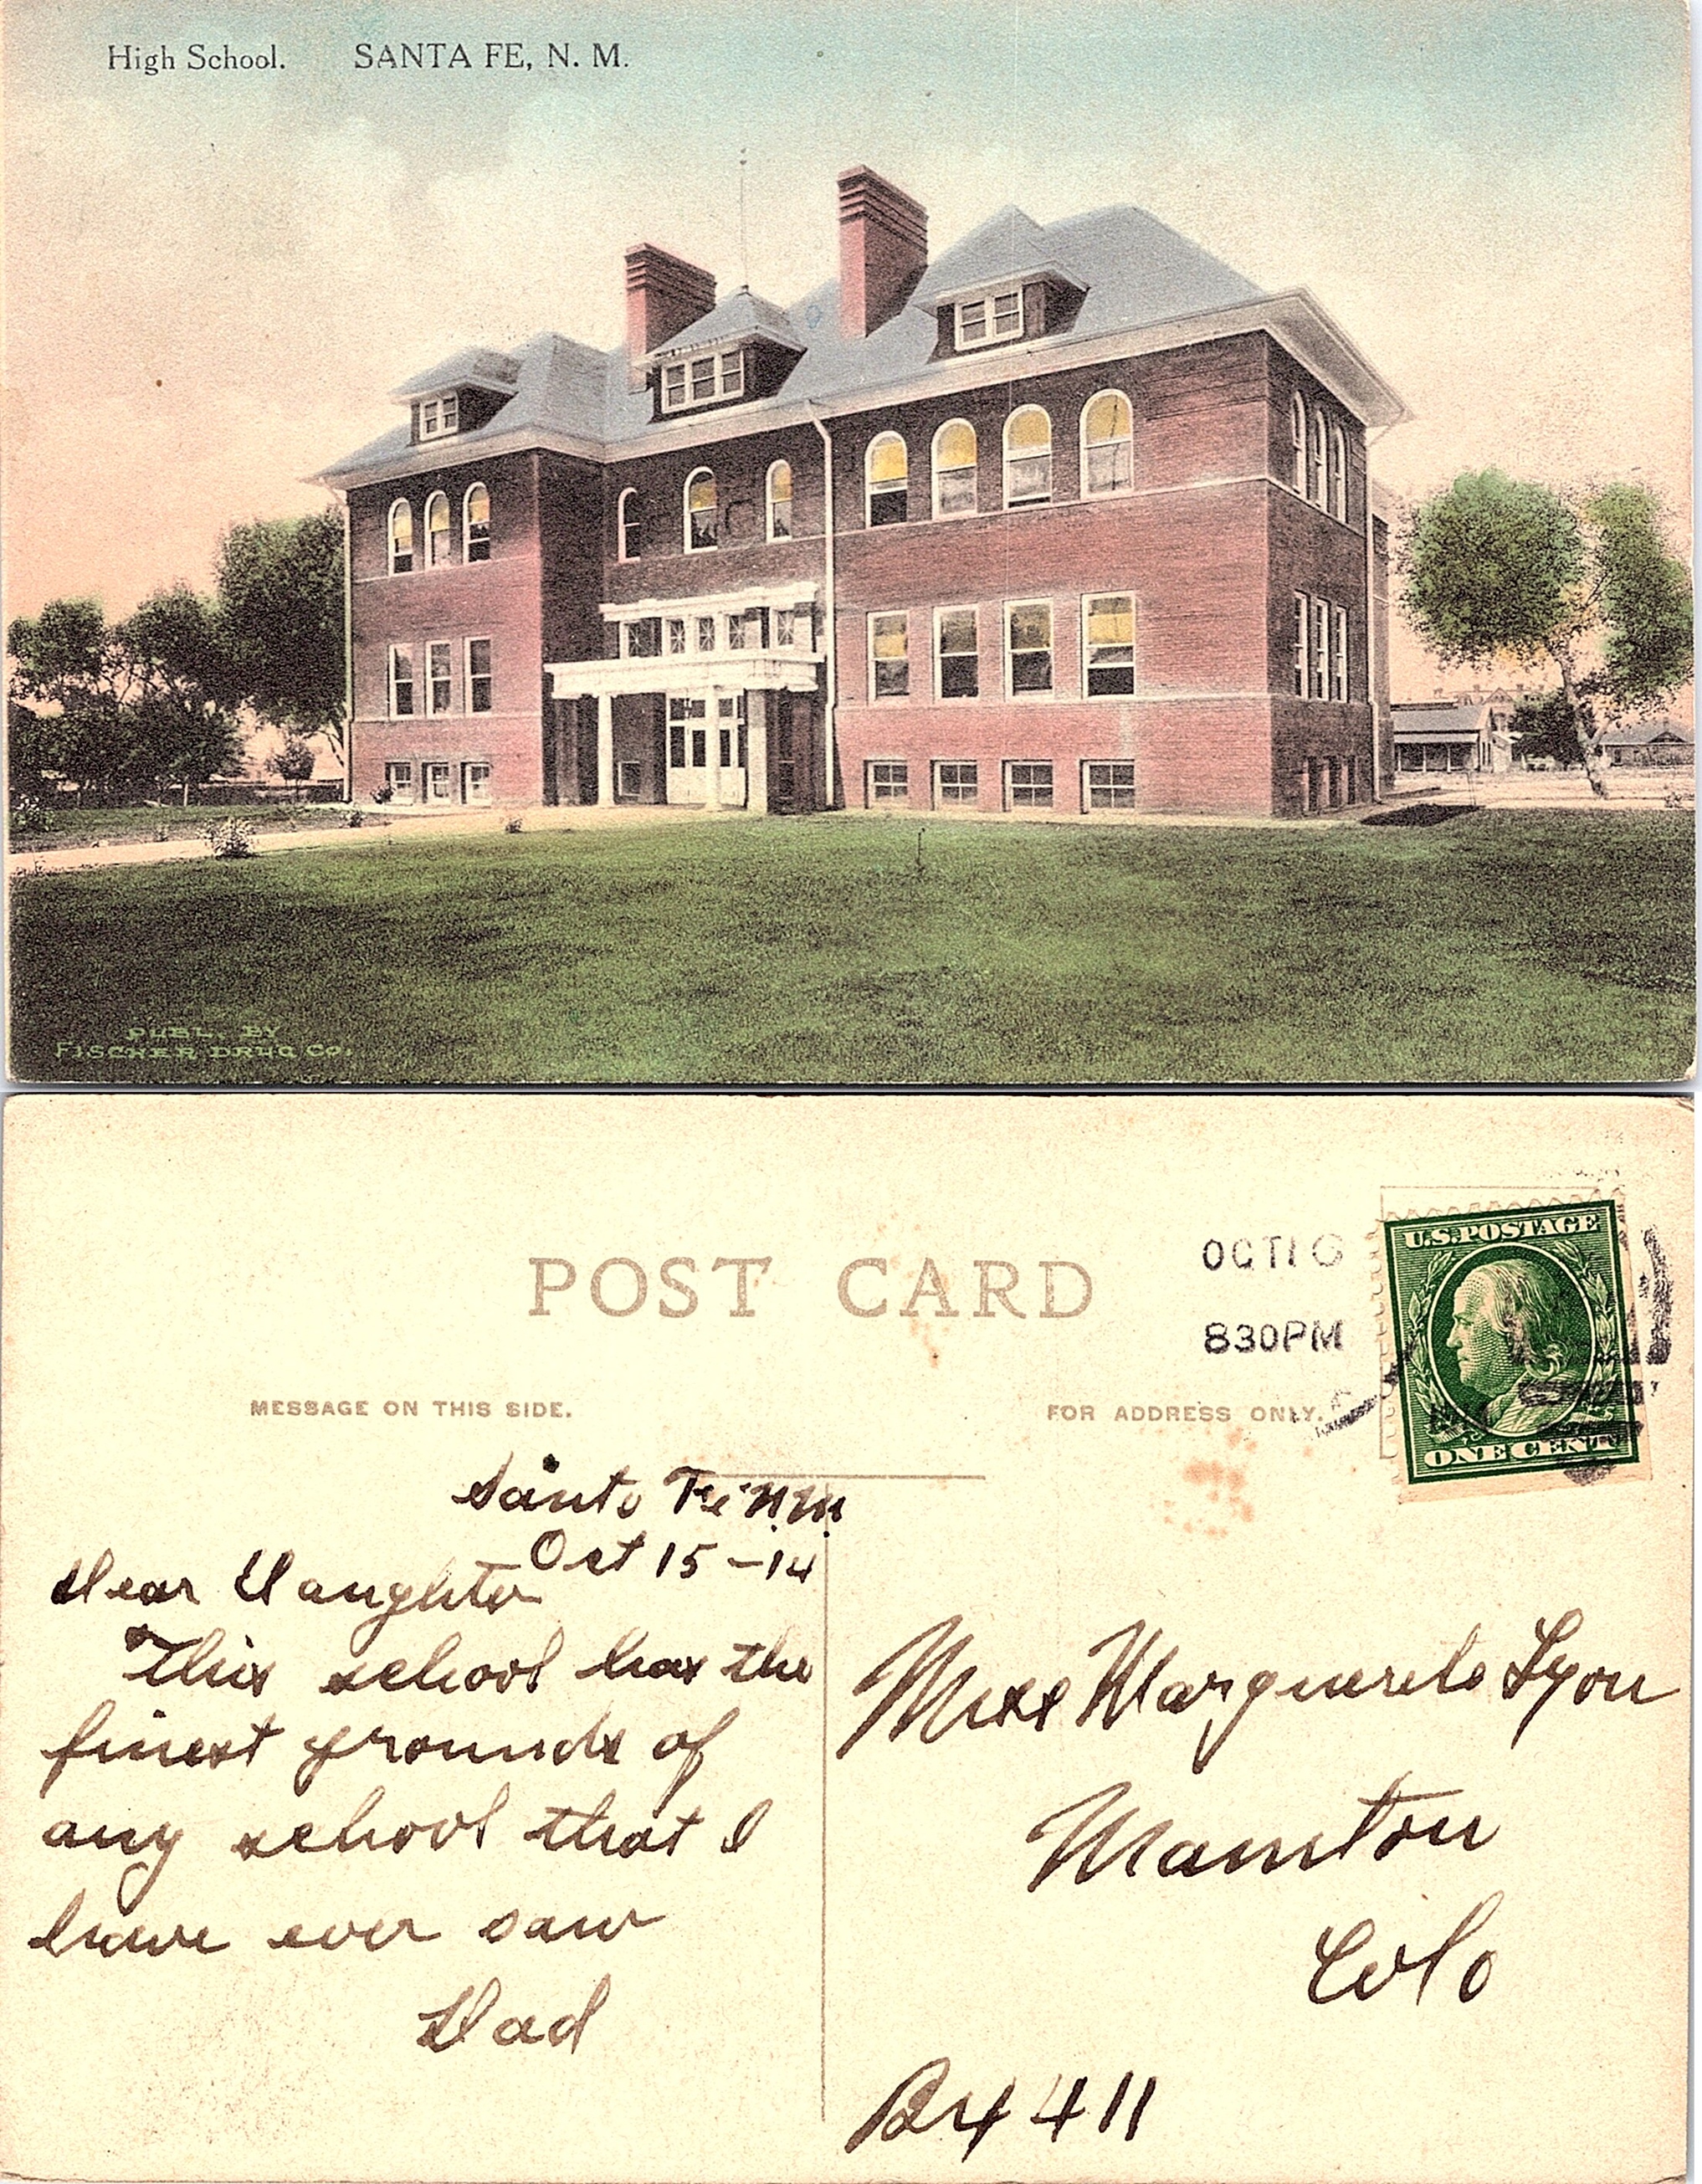 High School. SANTA FE, N. M.
PUBL. BY
FISCHER DRUG CO.
POST CARD
OCT 16
830PM
U.S. POSTAGE
ONE CENT
MESSAGE ON THIS SIDE.
FOR ADDRESS ONLY.
Santa Fe N.M.
Oct 15-14
Dear Daughter
This school has the
finest grounds of
any school that I
have ever saw
Dad
Miss Marguerete Lyon
Manitou
Colo
Bx 411